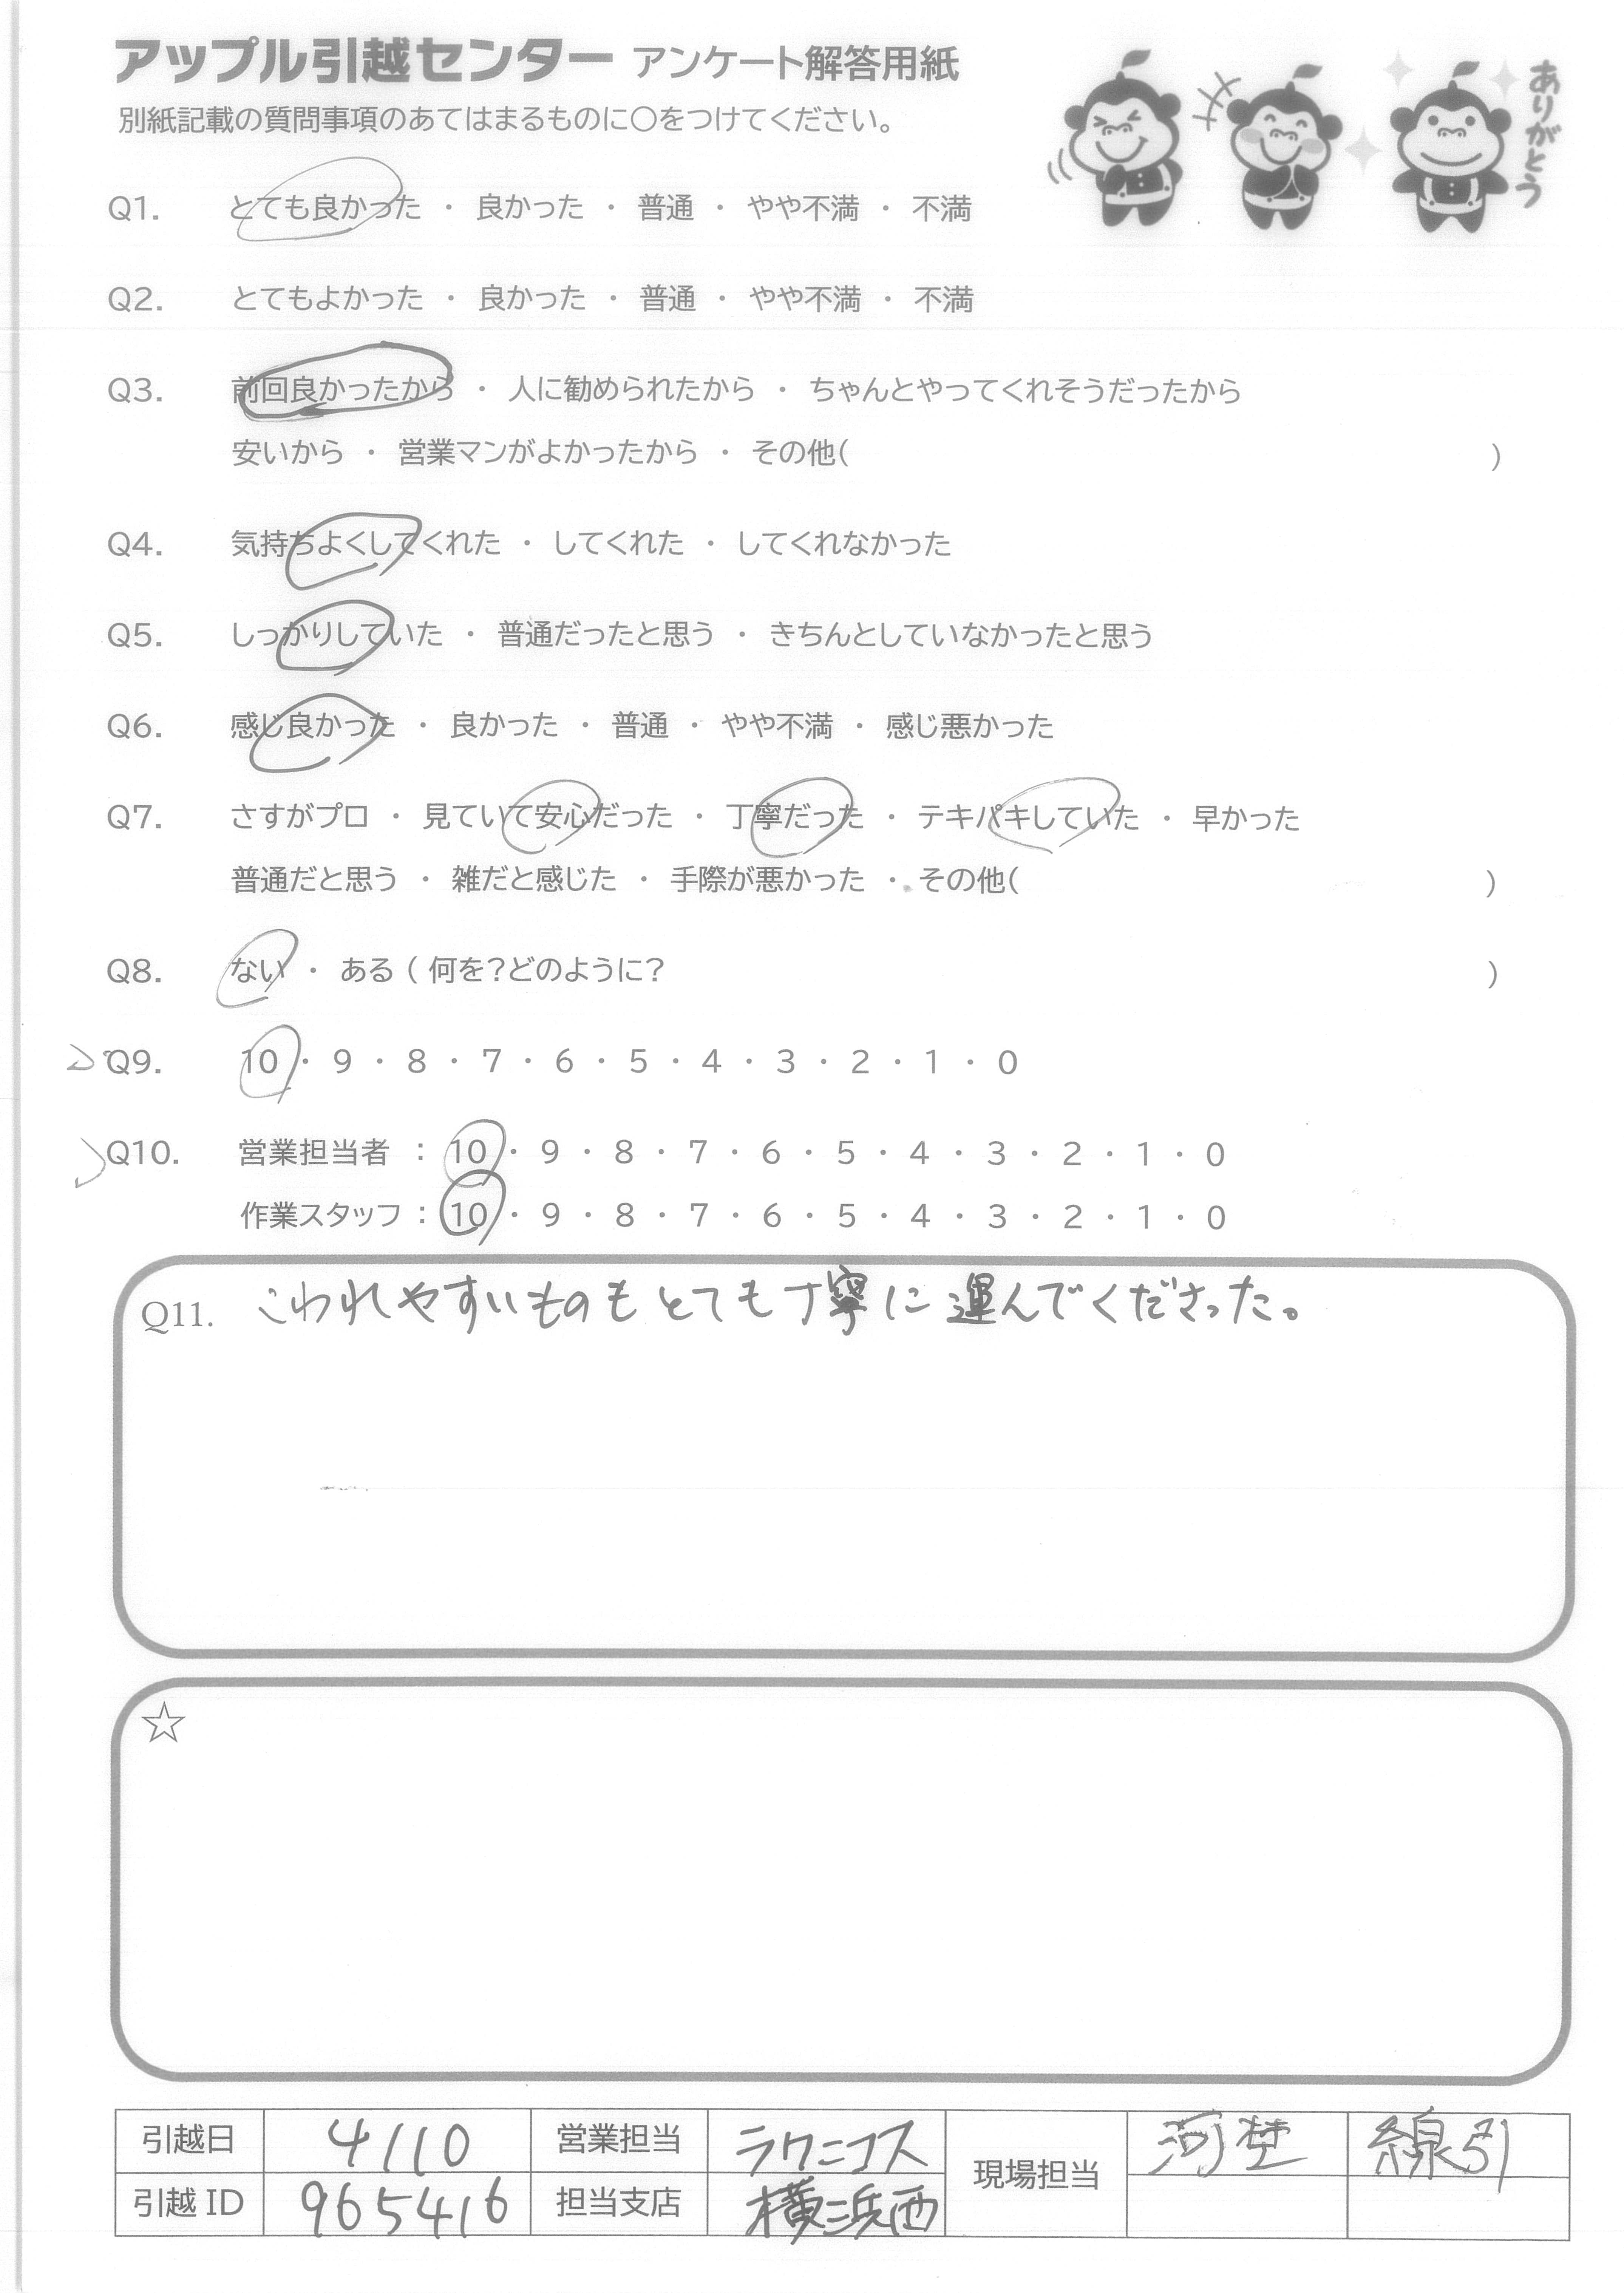 アップル引越センター アンケート解答用紙
別紙記載の質問事項のあてはまるものに〇をつけてください。
ありがとう
Q1. とても良かった ・ 良かった ・ 普通 ・ やや不満 ・ 不満
Q2. とてもよかった ・ 良かった ・ 普通 ・ やや不満 ・ 不満
Q3. 前回良かったから ・ 人に勧められたから ・ ちゃんとやってくれそうだったから
安いから ・ 営業マンがよかったから ・ その他( )
Q4. 気持ちよくしてくれた ・ してくれた ・ してくれなかった
Q5. しっかりしていた ・ 普通だったと思う ・ きちんとしていなかったと思う
Q6. 感じ良かった ・ 良かった ・ 普通 ・ やや不満 ・ 感じ悪かった
Q7. さすがプロ ・ 見ていて安心だった ・ 丁寧だった ・ テキパキしていた ・ 早かった
普通だと思う ・ 雑だと感じた ・ 手際が悪かった ・ その他( )
Q8. ない ・ ある ( 何を?どのように? )
Q9. 10 ・ 9 ・ 8 ・ 7 ・ 6 ・ 5 ・ 4 ・ 3 ・ 2 ・ 1 ・ 0
Q10. 営業担当者 : 10 ・ 9 ・ 8 ・ 7 ・ 6 ・ 5 ・ 4 ・ 3 ・ 2 ・ 1 ・ 0
作業スタッフ : 10 ・ 9 ・ 8 ・ 7 ・ 6 ・ 5 ・ 4 ・ 3 ・ 2 ・ 1 ・ 0
Q11. こわれやすいものもとても丁寧に運んでくださった。
☆
引越日 4/10 営業担当 ラクニコス 現場担当 線引
引越 ID 965416 担当支店 横浜西